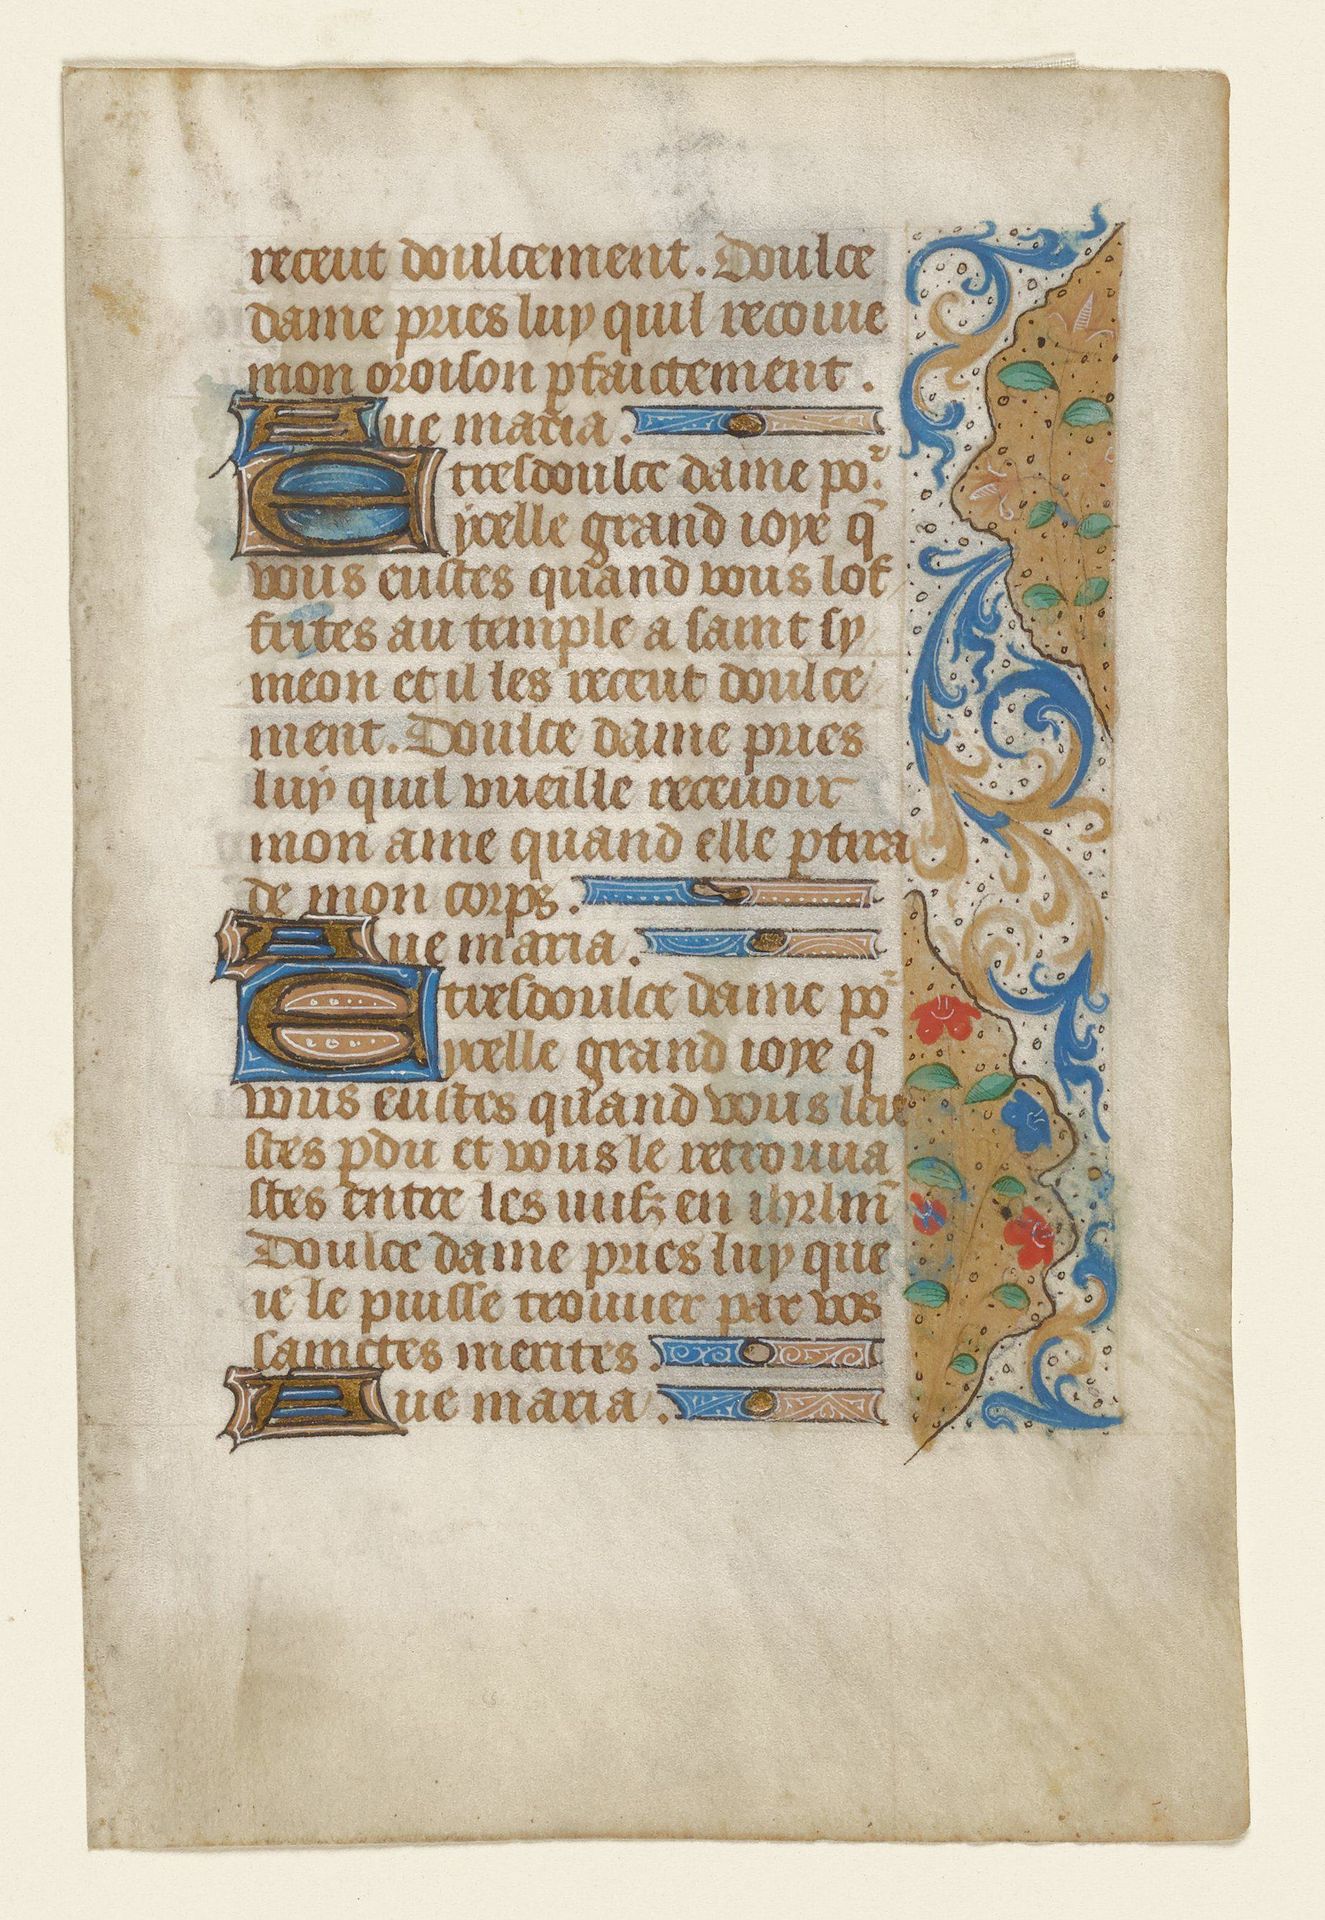 receut doulcement. Doulce
dame pries luy quil recoiue
mon oroison pfaictement.
Aue maria.
E tresdoulce dame po᷑.
ycelle grand ioye q̃
vous eustes quand vous lof
fristes au temple a saint sy
meon et il les receut doulce
ment. Doulce dame pries
luy quil vueille receuoir
mon ame quand elle ptira
de mon corps.
Aue maria.
E tresdoulce dame po᷑
ycelle grand ioye q̃
vous eustes quand vous leu
stes pdu et vous le retrouua
stes entre les iuifz en ihrlm̄
Doulce dame pries luy que
ie le puisse trouuer par vos
sainctes merites.
Aue maria.